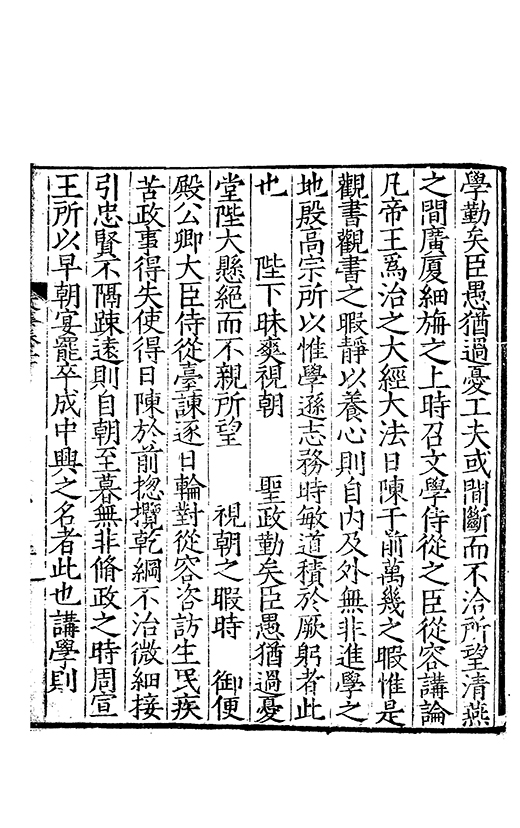 學勤矣臣愚猶過憂工夫或間斷而不洽所望清燕
之間廣厦細旃之上時召文學侍從之臣從容講論
凡帝王爲治之大經大法日陳于前萬幾之暇惟是
觀書觀書之暇靜以養心則自内及外無非進學之
地殷高宗所以惟學遜志務時敏道積於厥躬者此
也　陛下昧爽視朝　聖政勤矣臣愚猶過憂
堂陛大懸絕而不親所望　視朝之暇時　御便
殿公卿大臣侍從臺諫逐日輪對從容咨訪生民疾
苦政事得失使得日陳於前揔攬乾綱不治微細接
引忠賢不隔踈遠則自朝至暮無非脩政之時周宣
王所以早朝宴罷卒成中興之名者此也講學則